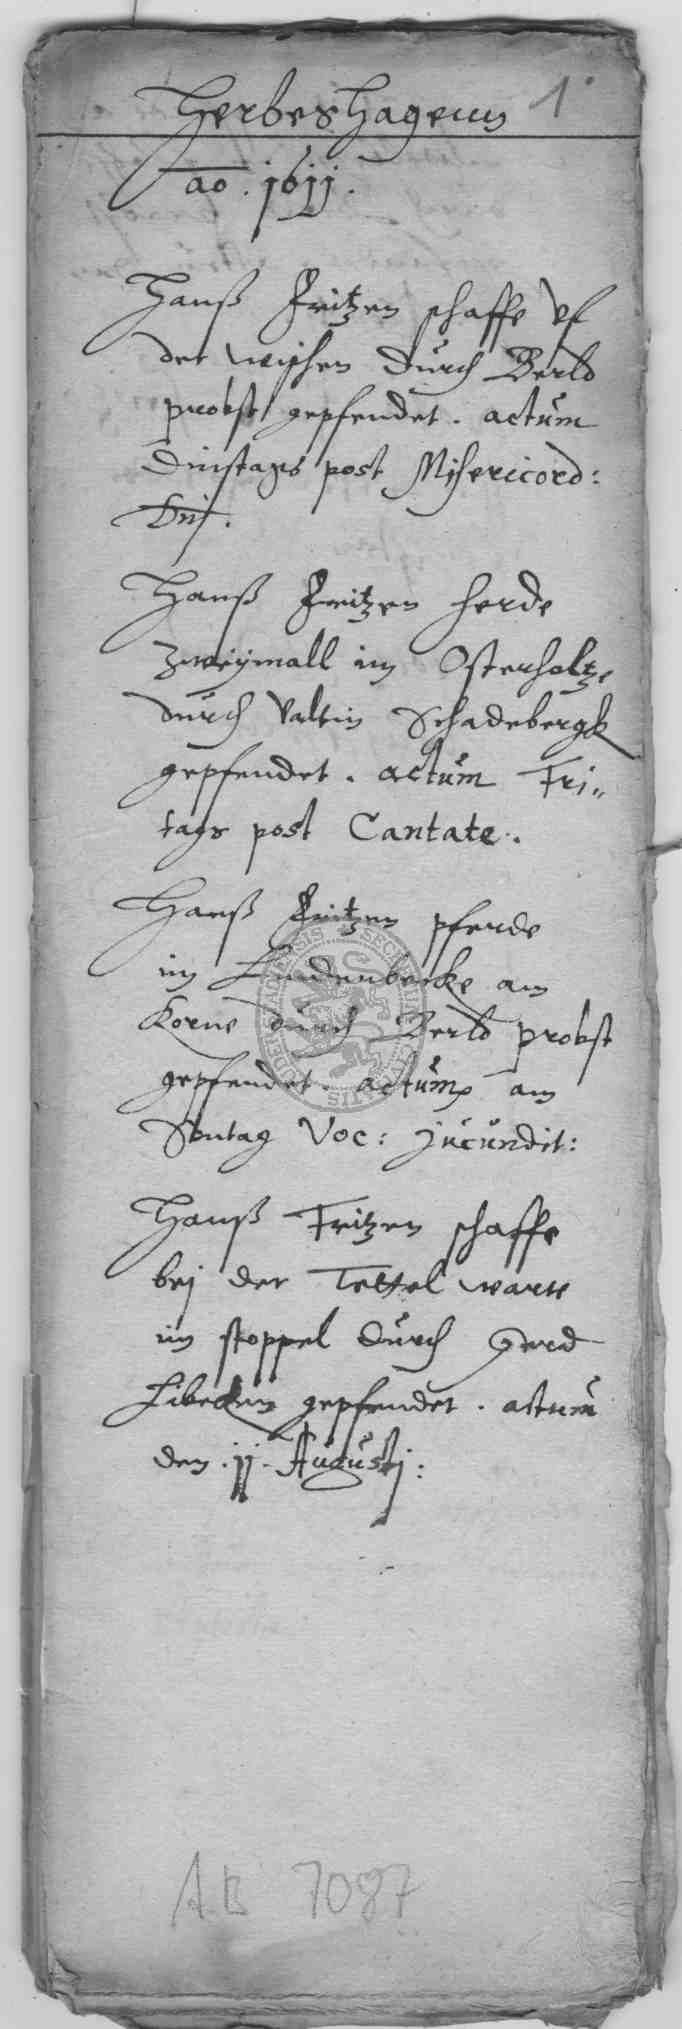 Herbeshagenn 1
ao. 1611.
Hanß Fritzen schaffe vf
der wischen durch Berld
probst gepfendet. actum
Dinstags post Misericord:
Dnj.
Hanß Fritzen herde
zweymall im Osterholtze
durch Valtin Schadebergk
gepfendet. actum Fri„
tags post Cantate.
Hanß Fritzen pferde
im Lindenbecke am
Korne durch Berld probst
gepfendet. actum am
Sontag Voc: jucundit:
Hanß Fritzen schaffe
bej der Tettel warte
im stoppel durch Gerd
Libecken gepfendet. actum
den. 11. Augustj:
AB 7087